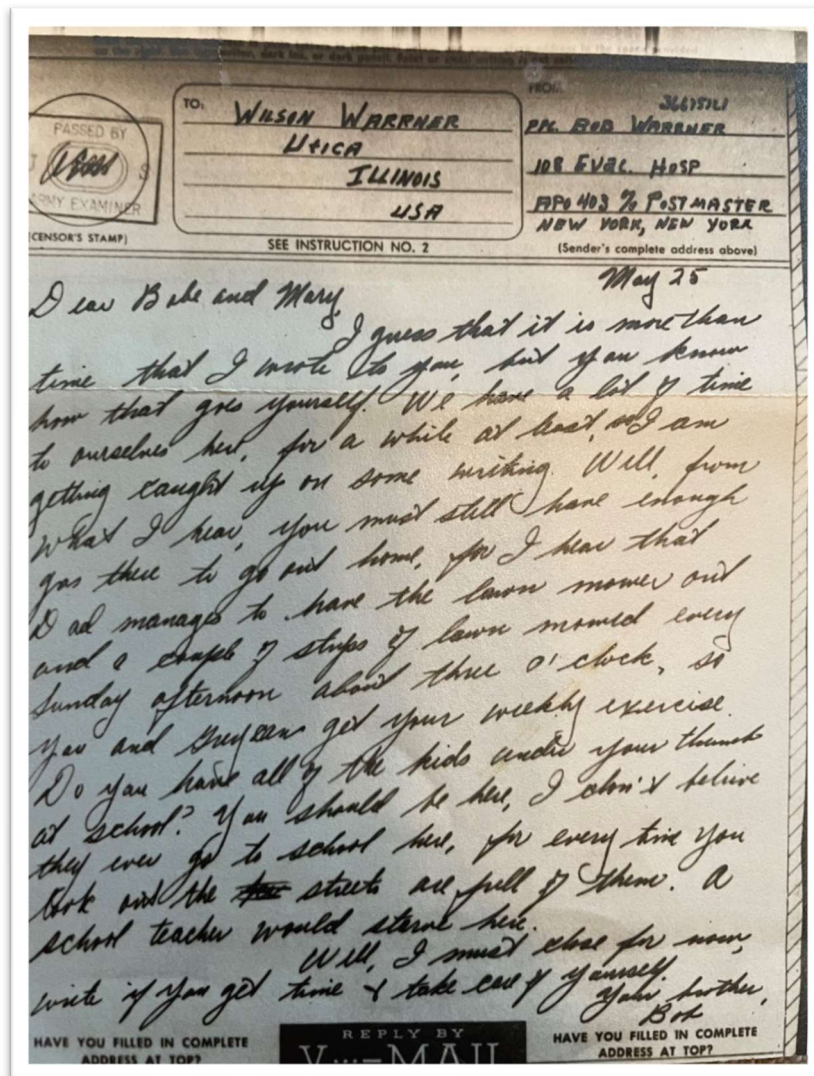 PASSED BY
U S
ARMY EXAMINER
(CENSOR'S STAMP)
TO:
WILSON WARRNER
UTICA
ILLINOIS
USA
SEE INSTRUCTION NO. 2
FROM
PFC. BOB WARRNER
108 EVAC. HOSP
APO 403 % POSTMASTER
NEW YORK, NEW YORK
(Sender's complete address above)
May 25
Dear Babe and Mary,
I guess that it is more than
time that I wrote to you, but you know
how that goes yourself. We have a lot of time
to ourselves here, for a while at least, so I am
getting caught up on some writing. Well, from
what I hear, you must still have enough
gas there to go out home, for I hear that
Dad manages to have the lawn mower out
and a couple of strips of lawn mowed every
Sunday afternoon about three o'clock, so
you and get your weekly exercise.
Do you have all of the kids under your thumb
at school? You should be here, I don't believe
they ever go to school here, for every time you
look out the streets are full of them. A
school teacher would starve here.
Well, I must close for now,
write if you get time & take care of yourself.
Your brother,
Bob
HAVE YOU FILLED IN COMPLETE
ADDRESS AT TOP?
REPLY BY
V···—MAIL
HAVE YOU FILLED IN COMPLETE
ADDRESS AT TOP?